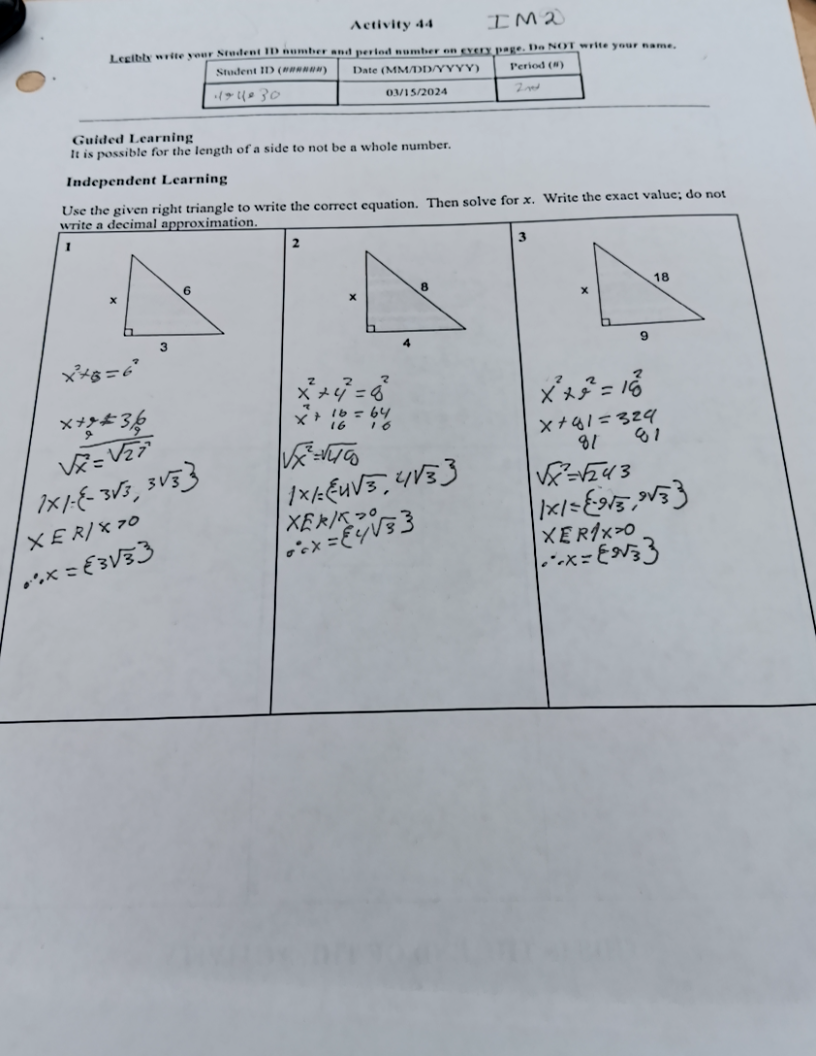 Activity 44 IM2
Legibly write your Student ID number and period number on every page. Do NOT write your name.
Student ID (######) Date (MM/DD/YYYY) Period (#)
03/15/2024 2nd
Guided Learning
It is possible for the length of a side to not be a whole number.
Independent Learning
Use the given right triangle to write the correct equation. Then solve for x. Write the exact value; do not
write a decimal approximation.
1
x 6
3
= 6²
= 36
√x² = √27
|x|={-3√3, 3√3}
XER/X>0
∴x = {3√3}
2
x 8
4
x² + 4² = 8²
x² + 16 = 64
16 16
√x²=√48
|x|={-4√3, 4√3}
XER/X>0
∴x = {4√3}
3
x 18
9
x² + 9² = 18²
x + 81 = 324
81 81
√x²=√243
|x|={-9√3, 9√3}
XER/X>0
∴x = {9√3}